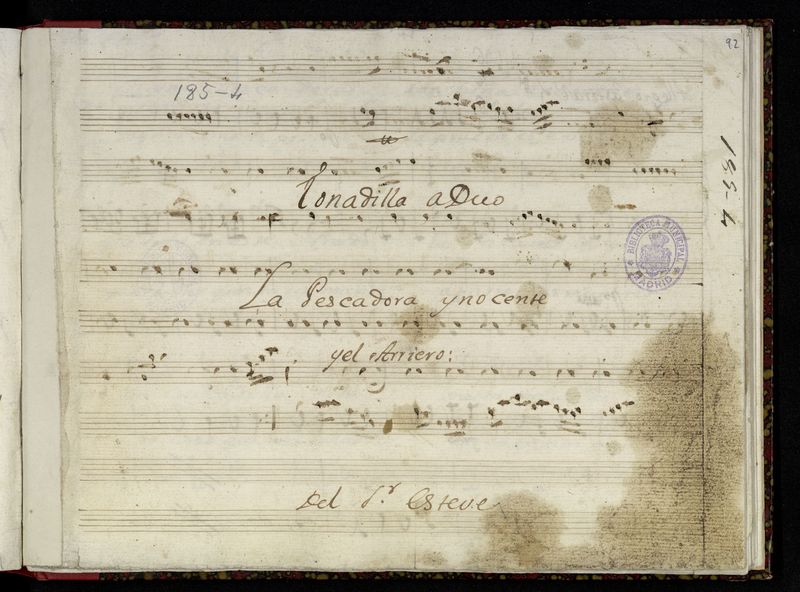 92
185-4
Tonadilla a Duo
185-4
BIBLIOTECA MUNICIPAL
MADRID
La Pescadora ynocente
yel Arriero:
Del S.r Esteve